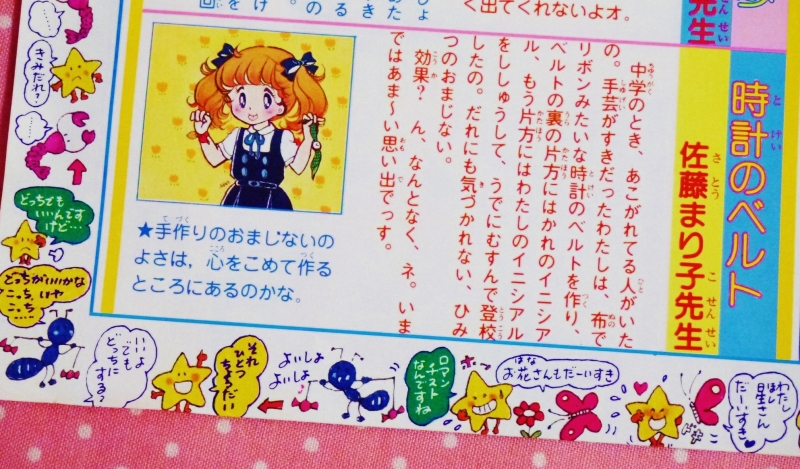 く出てくれないよオ。
先生
せんせい
時計のベルト
とけい
佐藤まり子先生
さとう
こせんせい
中学のとき、あこがれてる人がいた
の。手芸がすきだったわたしは、布で
リボンみたいな時計のベルトを作り、
ベルトの裏の片方にはかれのイニシア
ル、もう片方にはわたしのイニシアル
をししゅうして、うでにむすんで登校
したの。だれにも気づかれない、ひみ
つのおまじない。
効果? ん、なんとなく、ネ。いま
ではあま〜い思い出でっす。
★手作りのおまじないの
よさは，心をこめて作る
ところにあるのかな。
……
きみだれ?
……
どっちでも
いいんです
けど…
どっちがいいかな
こっち、いや
こっち…
いいよ
でも
どっちに
する?
それ
ひとつ
ちょうだい
よいしょ
よいしょ
ロマン
チスト
なんですね
ポッ
はな
お花さんもだーいすき
わたし
ほし
星さん
だーいすき♥
ドキ